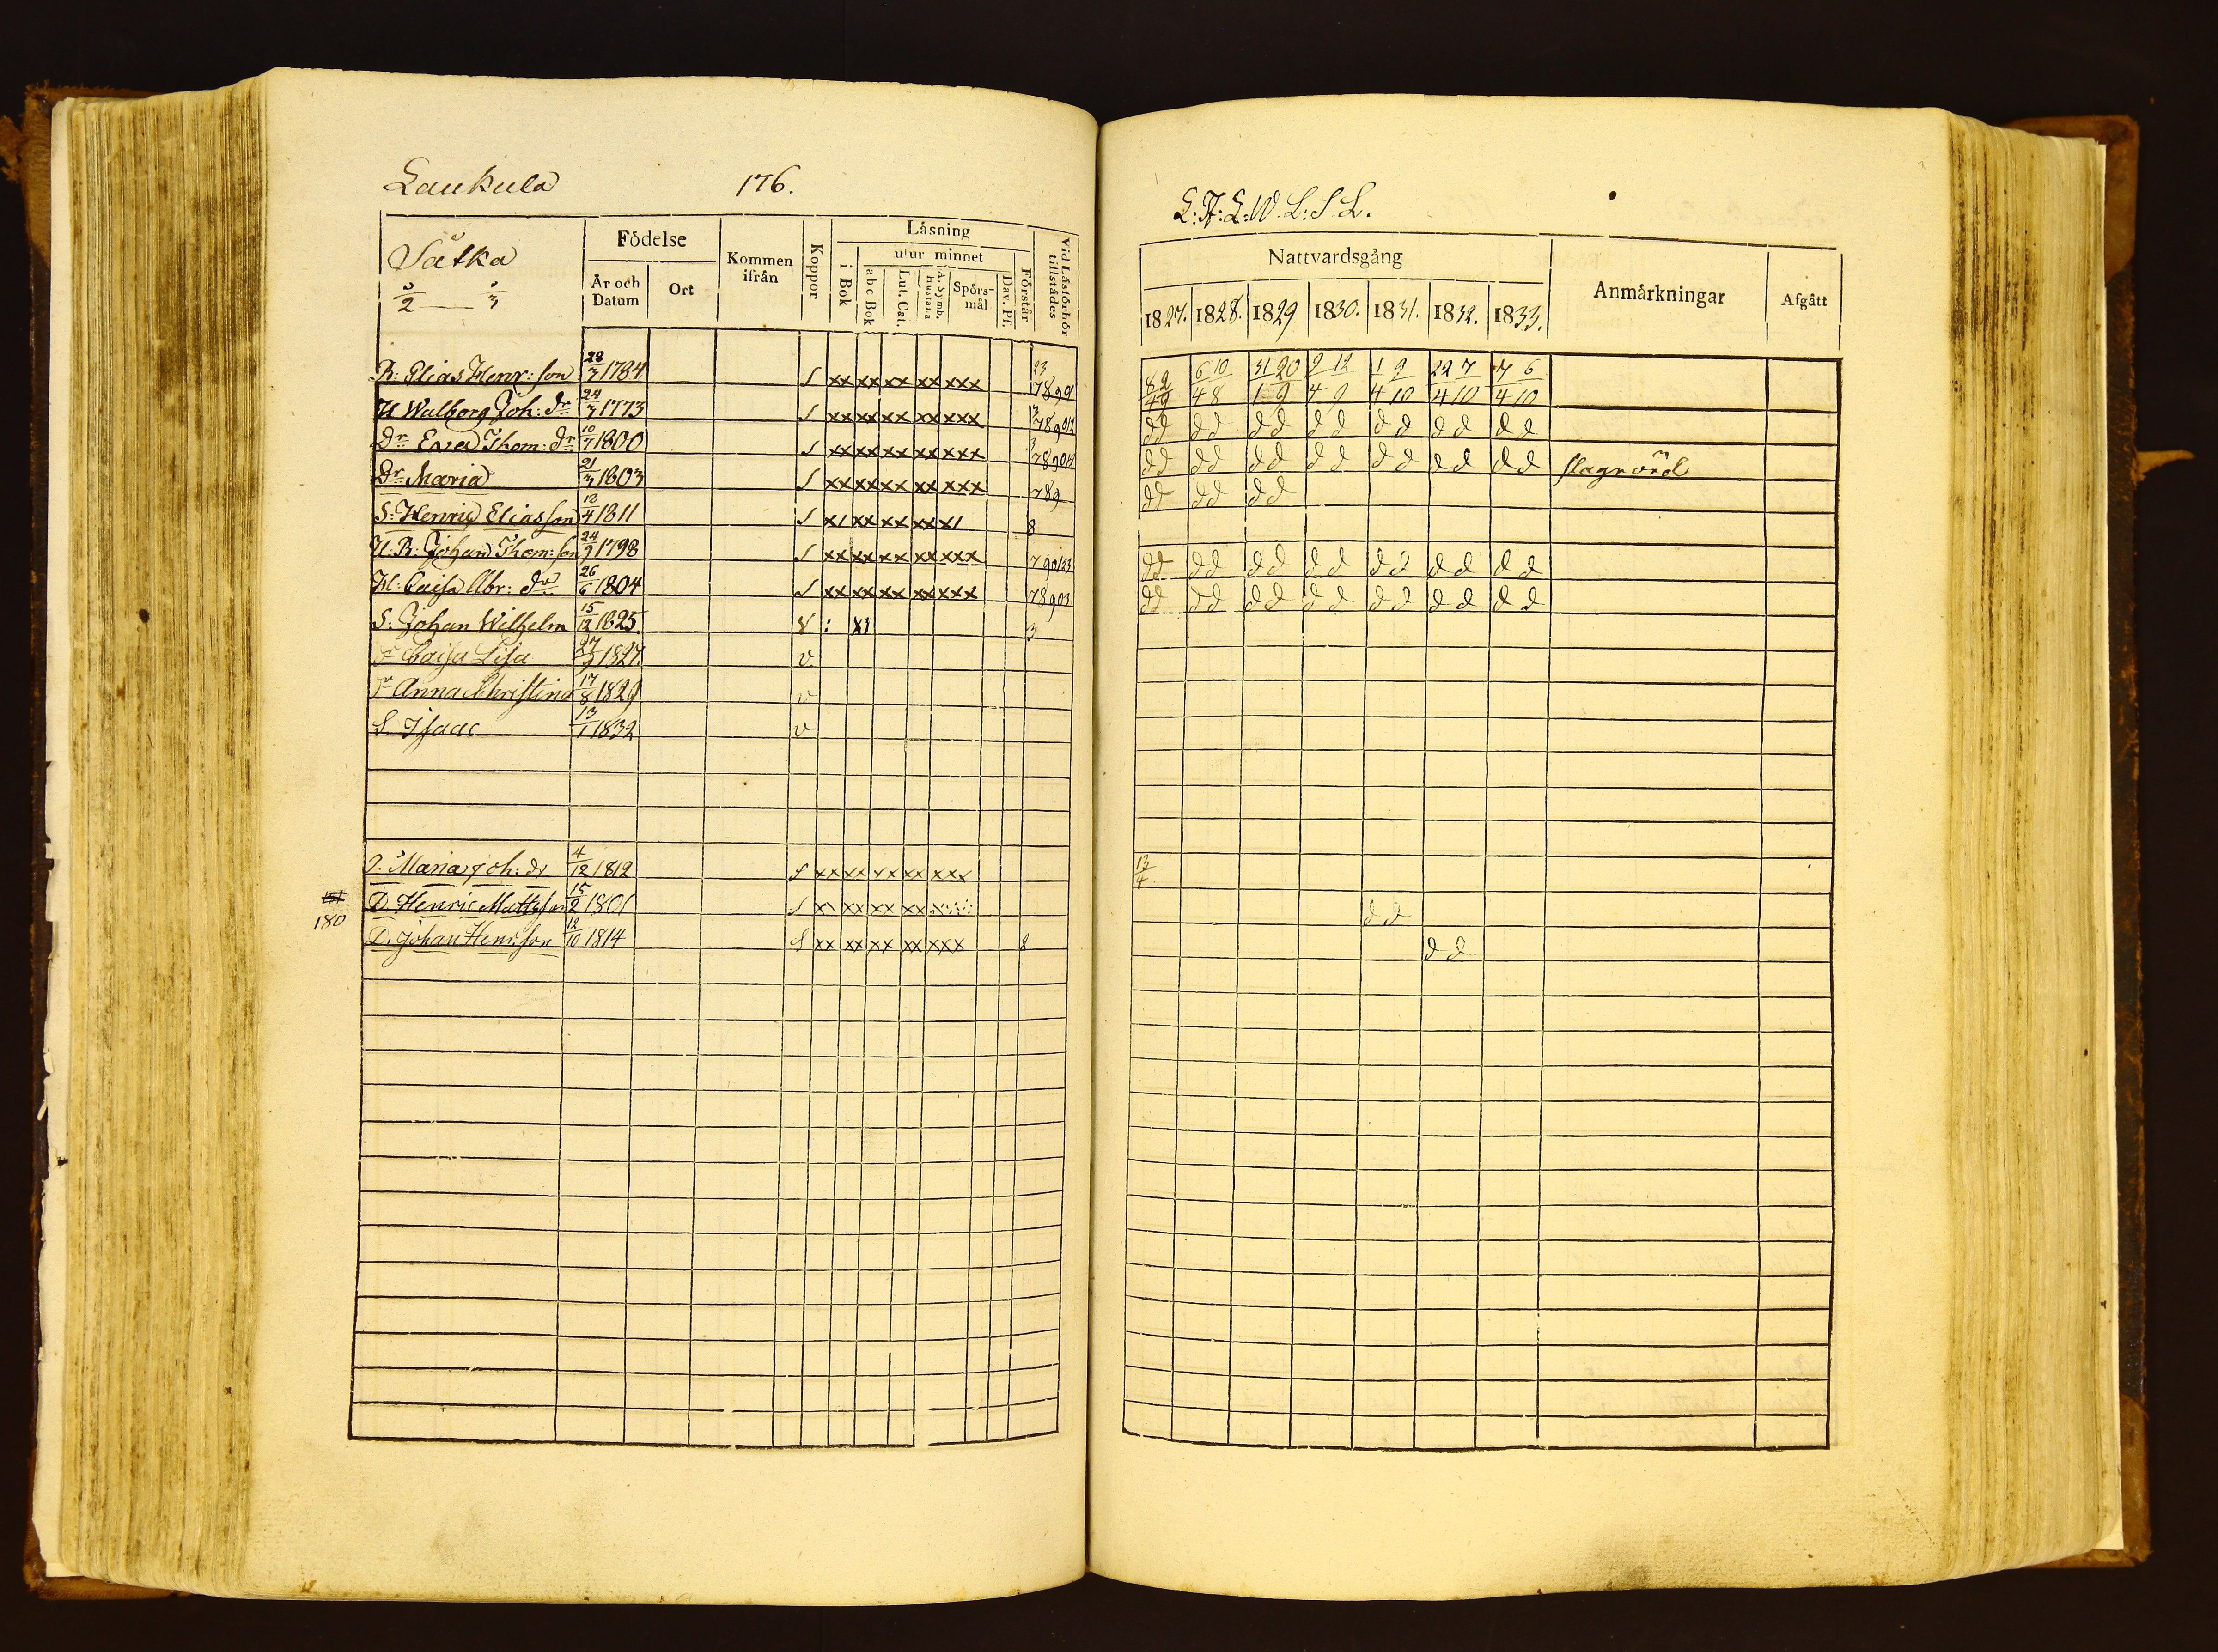 Laukula 176.
Sátka
2 — 3
Födelse
År och Datum
Ort
Kommen ifrån
Koppor
Läsning
i Bok
utur minnet
abc Bok
Lut. Cat.
A. Symb. Hustafla
Spörsmål
Dav. Ps.
Förstår
Vid Läsförhör tillstädes
B: Elias Henr: son 28/3 1784 S xx xx xx xx xxx 23 7899
H Walborg Joh: dr 24/3 1773 S xx xx xx xx xxx 3 789012
Dr Eva Thom: dr 10/7 1800 S xx xx xx xx xxx 3 789012
Dr Maria 21/3 1803 S xx xx xx xx xxx 789
S: Henric Eliasson 12/4 1811 S x/ xx xx xx x/ 8
U. B: Johan Thom: son 24/9 1798 S xx xx xx xx xxx 790123
H: Caisa Abr: dr 26/6 1804 S xx xx xx xx xxx 78903
S: Johan Wilhelm 15/12 1825 V : x/ 3
dr Caisa Lisa 27/9 1827. v.
dr Anna Christina 17/8 1829 v
S. Isaac 13/1 1832 v
P. Maria Joh: dr 4/12 1812 S xx xx xx xx xxx
180 D. Henric Mattsson 15/2 1801 S xx xx xx
D. Johan Henr: son 12/10 1814 S xx xx xx xx xxx 8
L: H: L: W. L: S. L.
Nattvardsgång
Anmärkningar
Afgått
1827. 1828. 1829 1830. 1831. 1832. 1833.
8 2/4 9 6 10/4 8 31 20/1 9 9 12/4 9 1 9/4 10 22 7/4 10 7 6/4 10
dd dd dd dd dd dd dd
dd dd dd dd dd dd dd
dd dd dd
dd dd dd dd dd dd dd
dd dd dd dd dd dd dd
13/4
dd
dd